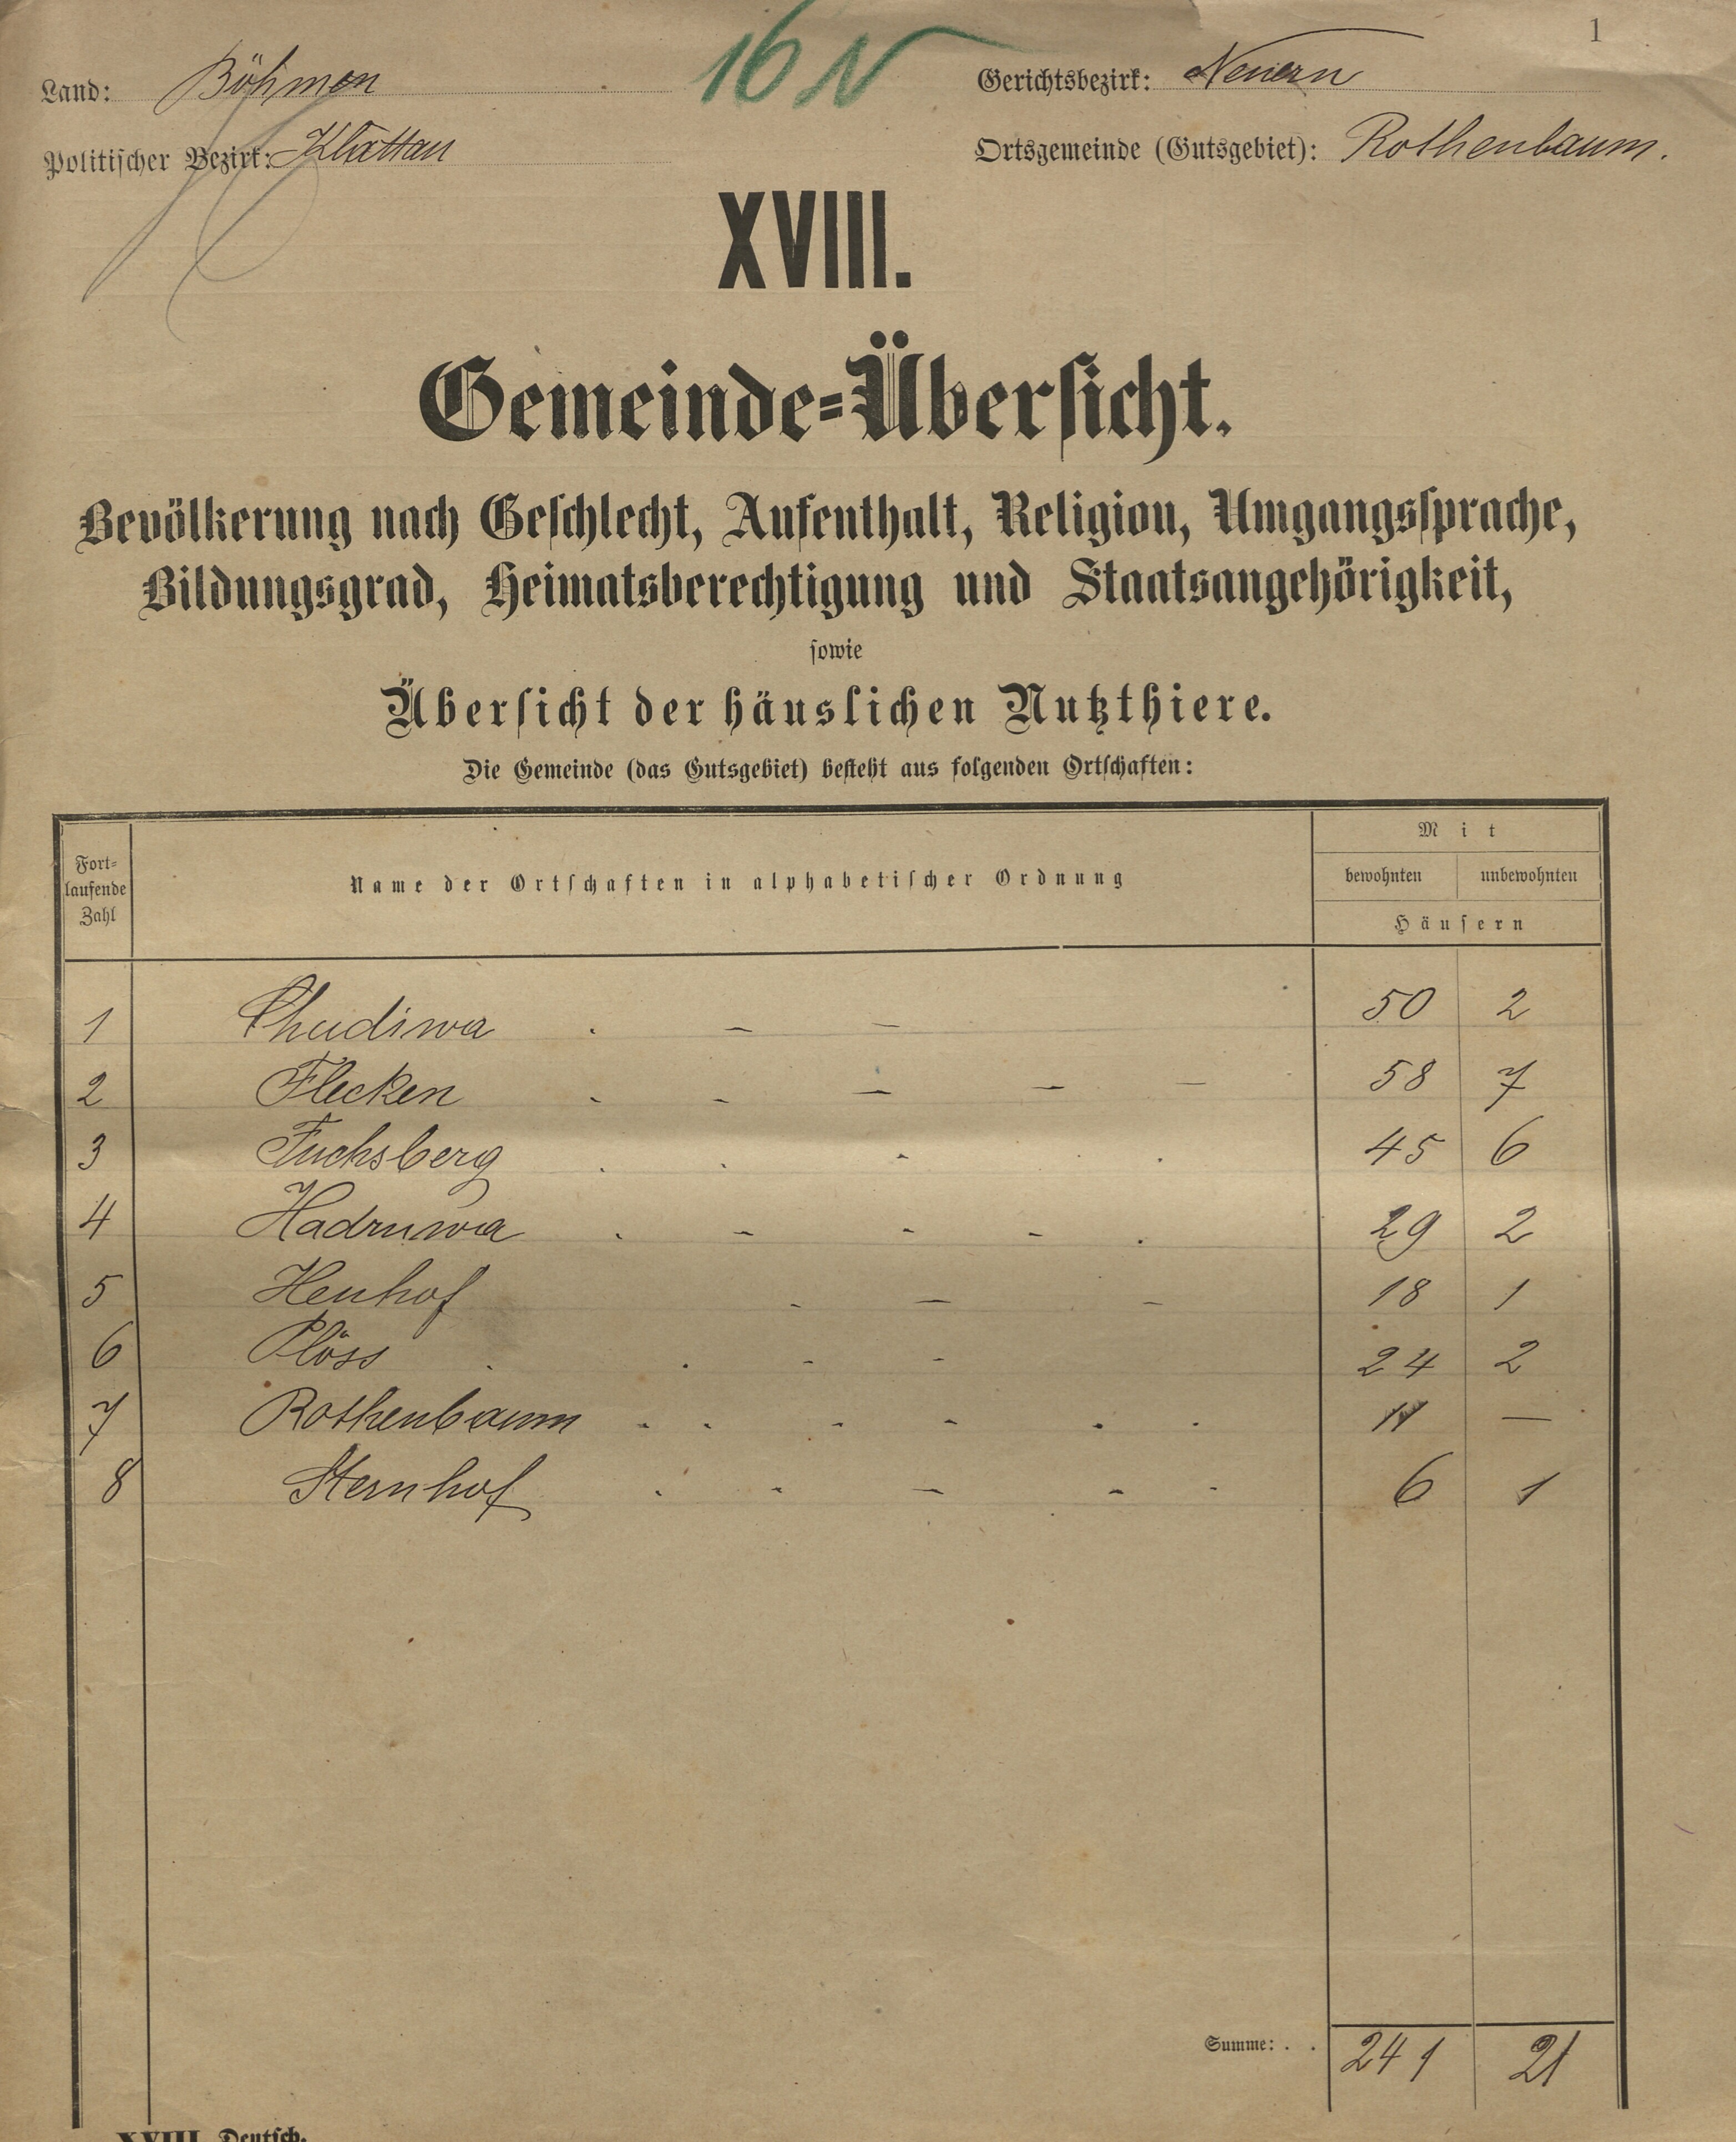 16
1
Land: Böhmen
Gerichtsbezirk: Neuern
Politischer Bezirk: Klattau
Ortsgemeinde (Gutsgebiet): Rothenbaum.
XVIII.
Gemeinde-Übersicht.
Bevölkerung nach Geschlecht, Aufenthalt, Religion, Umgangssprache,
Bildungsgrad, Heimatsberechtigung und Staatsangehörigkeit,
sowie
Übersicht der häuslichen Nutzthiere.
Die Gemeinde (das Gutsgebiet) besteht aus folgenden Ortschaften:
Fortlaufende Zahl
Name der Ortschaften in alphabetischer Ordnung
Mit
bewohnten unbewohnten
Häusern
1 Chudiwa . – – 50 2
2 Flecken . - – – – 58 7
3 Fuchsberg . . - . 45 6
4 Hadruwa . - - - . 29 2
5 Heuhof - – – 18 1
6 Plöss . . - - 24 2
7 Rothenbaum - - - - - - 11 —
8 Sternhof . - – - - 6 1
Summe: . . 241 21
XVIII. Deutsch.